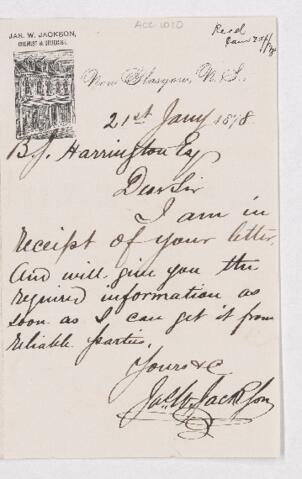 ACC 1010
Recd
JAS. W. JACKSON,
CHEMIST & DRUGGIST.
New Glasgow, N.S.,
21st Jany 1878.
B.J. Harrington Esq
Dear Sir
I am in
receipt of your letter
And will give you the
required information as
soon as I can get it from
reliable parties.
Yours &c
Jas. W. Jackson